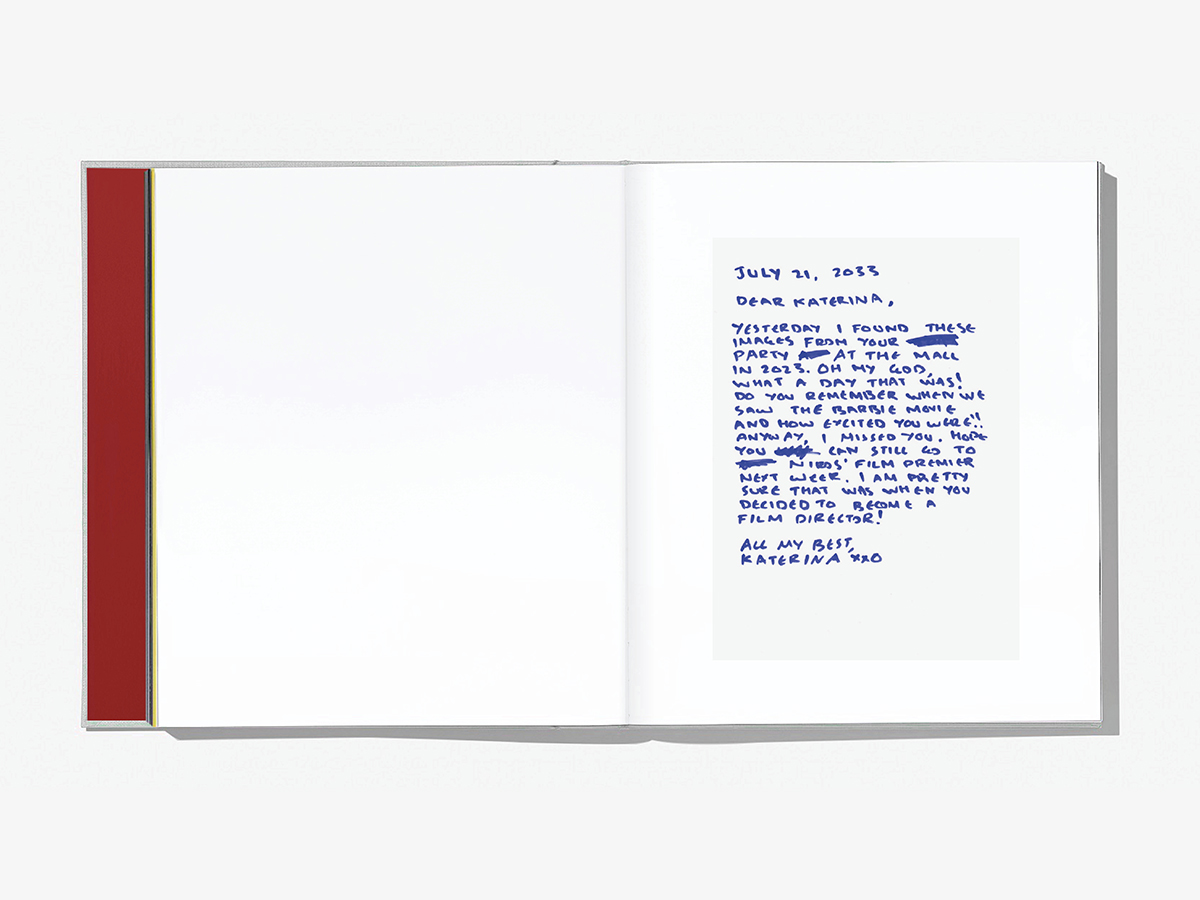 JULY 21, 2033
DEAR KATERINA,
YESTERDAY I FOUND THESE
IMAGES FROM YOUR
PARTY AT THE MALL
IN 2023. OH MY GOD,
WHAT A DAY THAT WAS!
DO YOU REMEMBER WHEN WE
SAW THE BARBIE MOVIE
AND HOW EXCITED YOU WERE!!
ANYWAY, I MISSED YOU. HOPE
YOU CAN STILL GO TO
NIROS' FILM PREMIER
NEXT WEEK. I AM PRETTY
SURE THAT WAS WHEN YOU
DECIDED TO BECOME A
FILM DIRECTOR!
ALL MY BEST,
KATERINA XXO